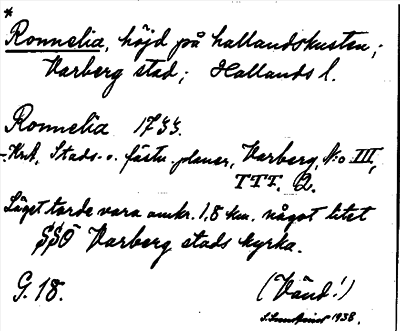 *
Ronnelia, höjd på hallandskusten;
Varberg stad; Hallands l.
Ronnelia 1733.
KrA, Stads- o. fästn. planer, Varberg, N:o III,
TTT. 2.
Läget torde vara omkr. 1,8 km. något litet
SSO Varberg stads kyrka.
G. 18.
(Vänd!)
1938.